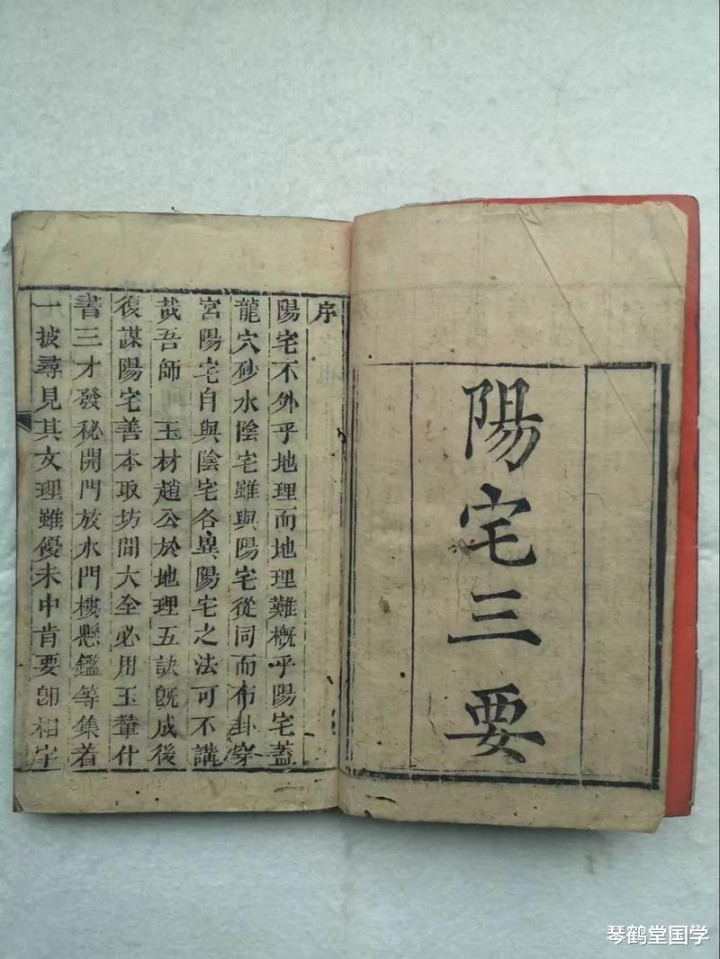 陽宅三要
序
陽宅不外乎地理而地理難概乎陽宅蓋
龍穴砂水陰宅雖與陽宅從同而布卦穿
宮陽宅自與陰宅各異陽宅之法可不講
哉吾師 玉材趙公於地理五訣旣成後
復謀陽宅善本取坊間大全必用玉輦什
書三才發秘開門放水門樓懸鑑等集着
一披尋見其文理雖優未中肯要卽相宅
琴鹤堂国学